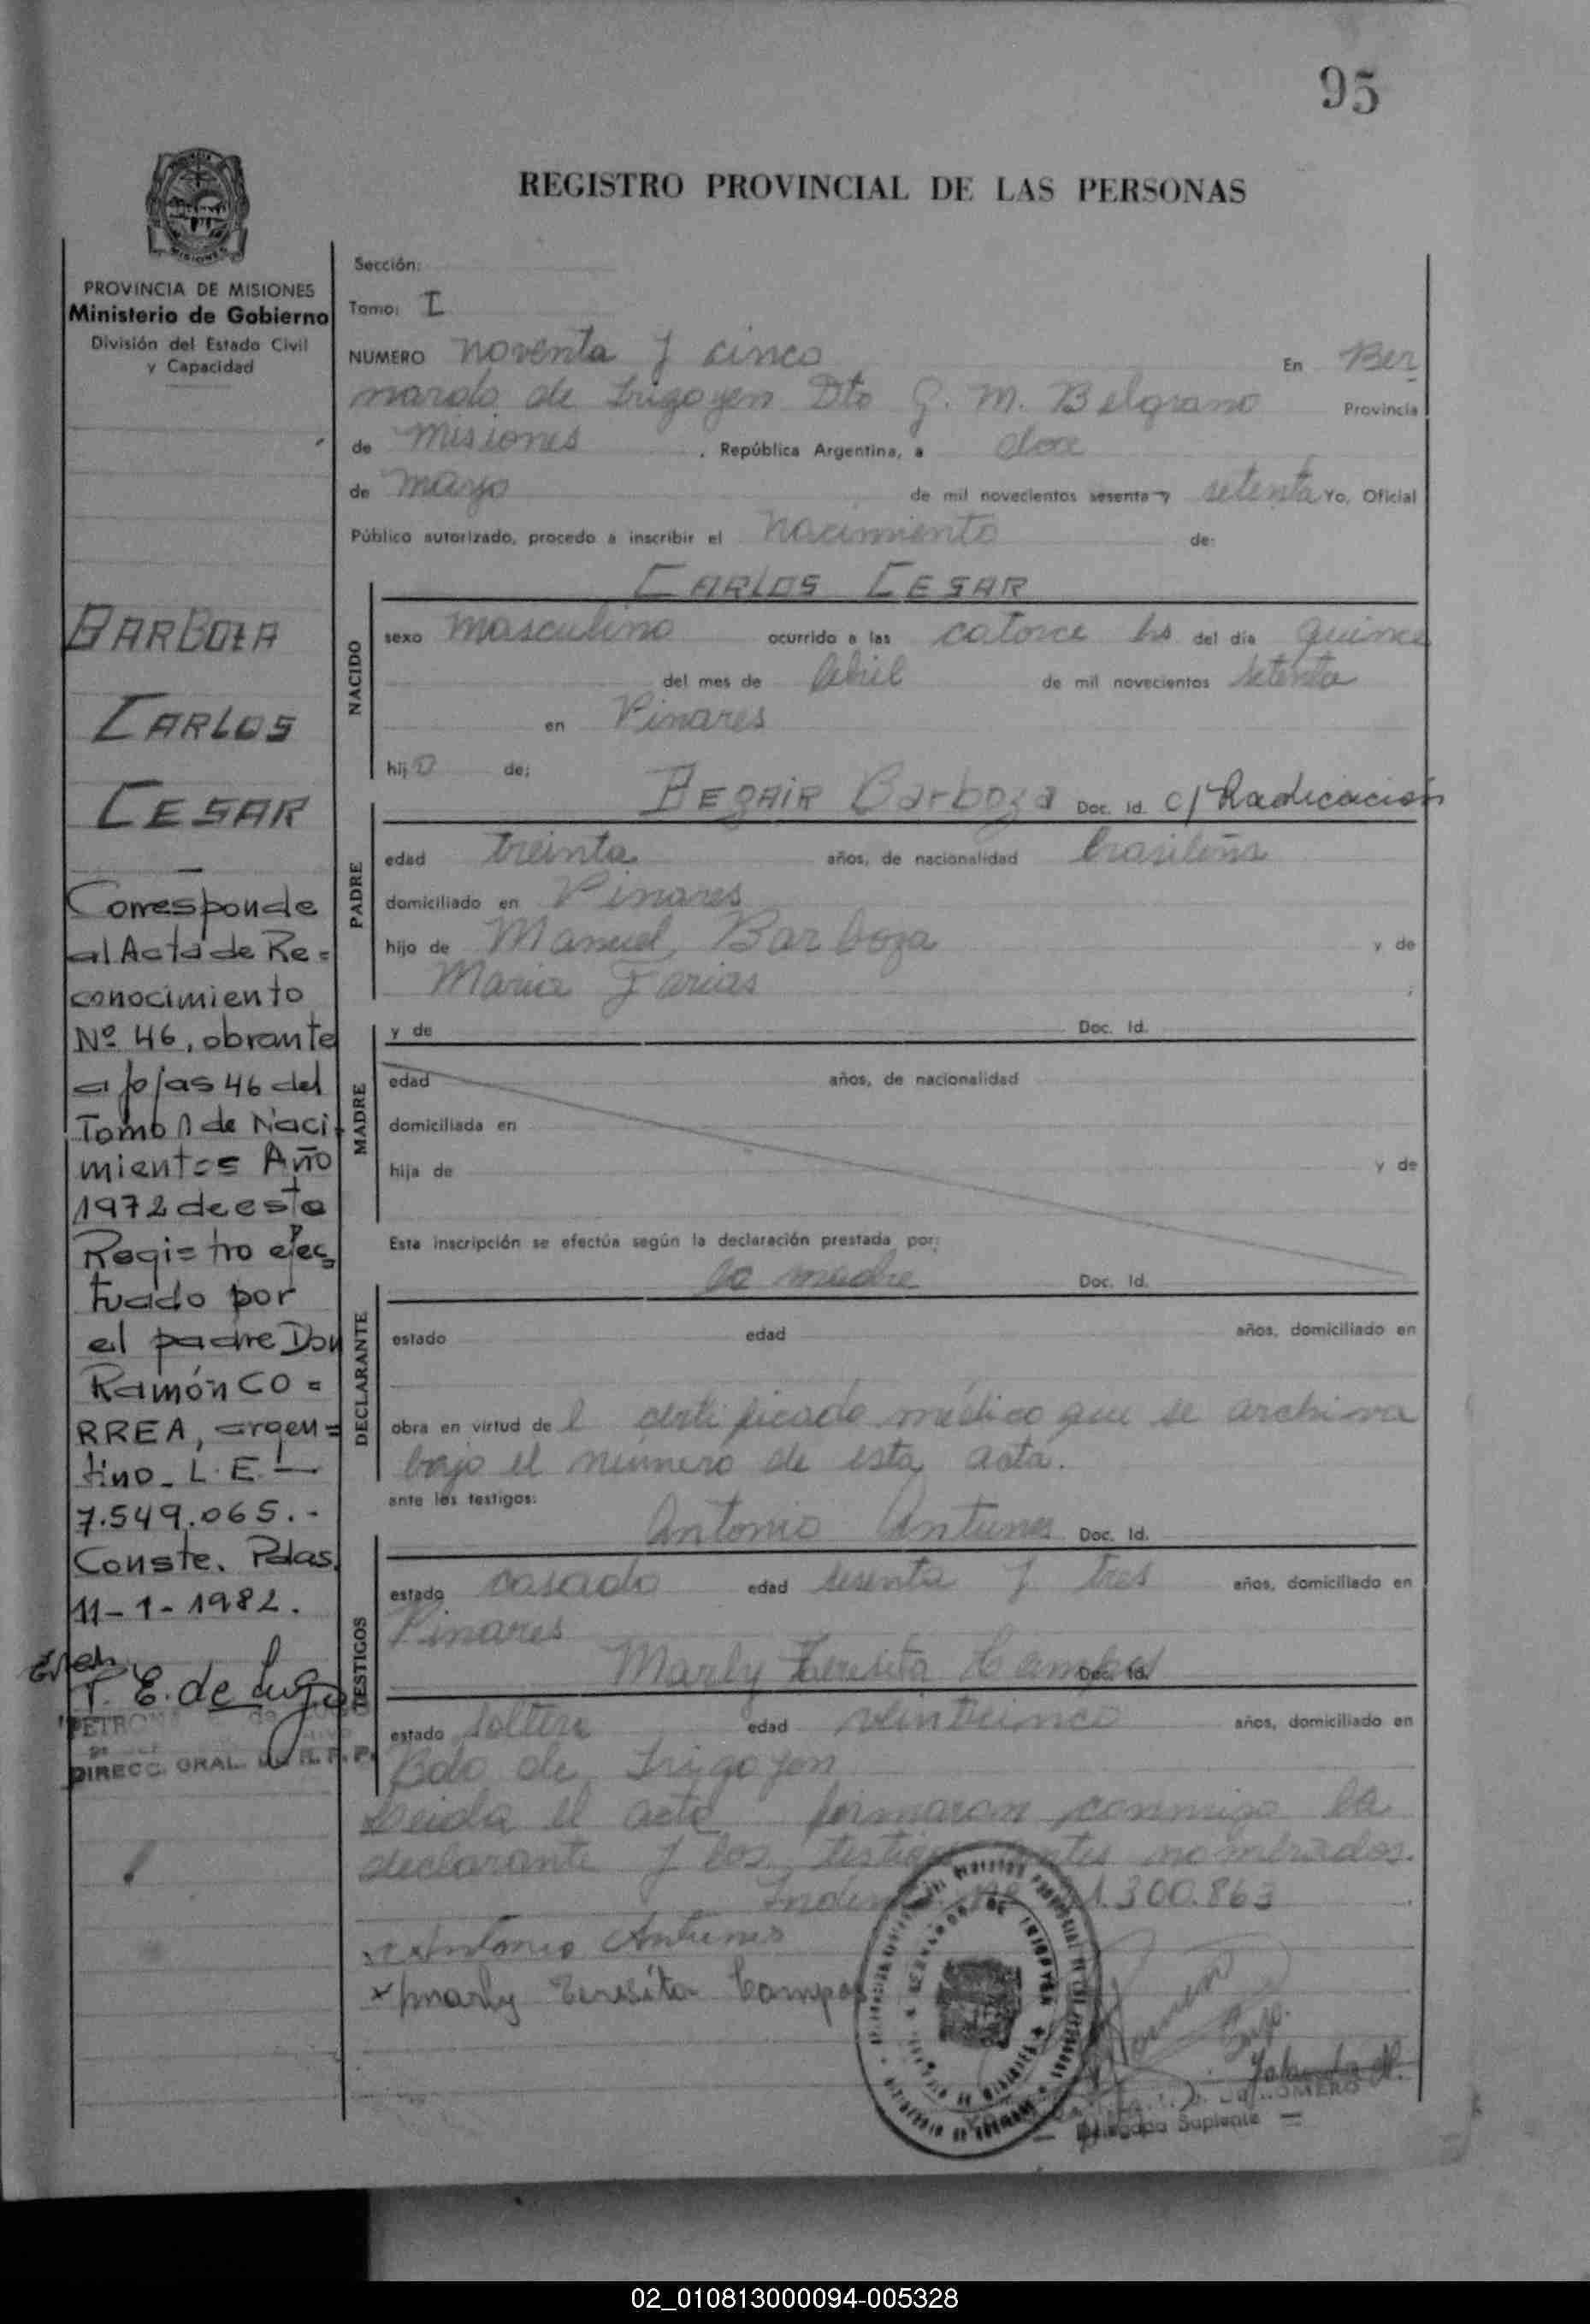 95
REGISTRO PROVINCIAL DE LAS PERSONAS
MISIONES
PROVINCIA DE MISIONES
Ministerio de Gobierno
División del Estado Civil
y Capacidad
BARBOZA
CARLOS
CESAR
Corresponde
al Acta de Re=
conocimiento
Nº 46, obrante
a fojas 46 del
Tomo 1 de Naci
mientos Año
1972 de este
Registro efec
tuado por
el padre Don
Ramón CO=
RREA, argen=
tino_ L.E.
7.549.065.-
Conste. Pdas.
11-1-1982.
T. E. de Lugo
DIRECC. GRAL. R. P. P.
Sección:
Tomo: I
NUMERO noventa y cinco En Ber
nardo de Irigoyen Dto G. M. Belgrano Provincia
de Misiones , República Argentina, a doce
de mayo de mil novecientos sesenta y setenta Yo, Oficial
Público autorizado, procedo a inscribir el nacimiento de:
CARLOS CESAR
NACIDO
sexo masculino ocurrido a las catorce hs del día quince
del mes de Abril de mil novecientos setenta
en Pinares
hijo de:
BEGAIR Barboza Doc. Id. c/ Radicación
PADRE
edad treinta años, de nacionalidad brasileña
domiciliado en Pinares
hijo de Manuel Barboza y de
Maria Farias ;
MADRE
y de Doc. Id.
edad años, de nacionalidad
domiciliada en
hija de y de
Esta inscripción se efectúa según la declaración prestada por:
la madre Doc. Id.
DECLARANTE
estado edad años, domiciliado en
obra en virtud de l certificado médico que se archiva
bajo el número de esta acta.
ante los testigos:
Antonio Antunes Doc. Id.
TESTIGOS
estado casado edad sesenta y tres años, domiciliado en
Pinares
Marly Teresita Campos Doc. Id.
estado soltera edad veinticinco años, domiciliado en
Bdo de Irigoyen
Leida el acta firmaron conmigo la
declarante y los testigos antes nombrados.
1.300.863
x Antonio Antunes
x Marly Teresita Campos
Yolanda
ROMERO
Delegada Suplente
02_010813000094-005328